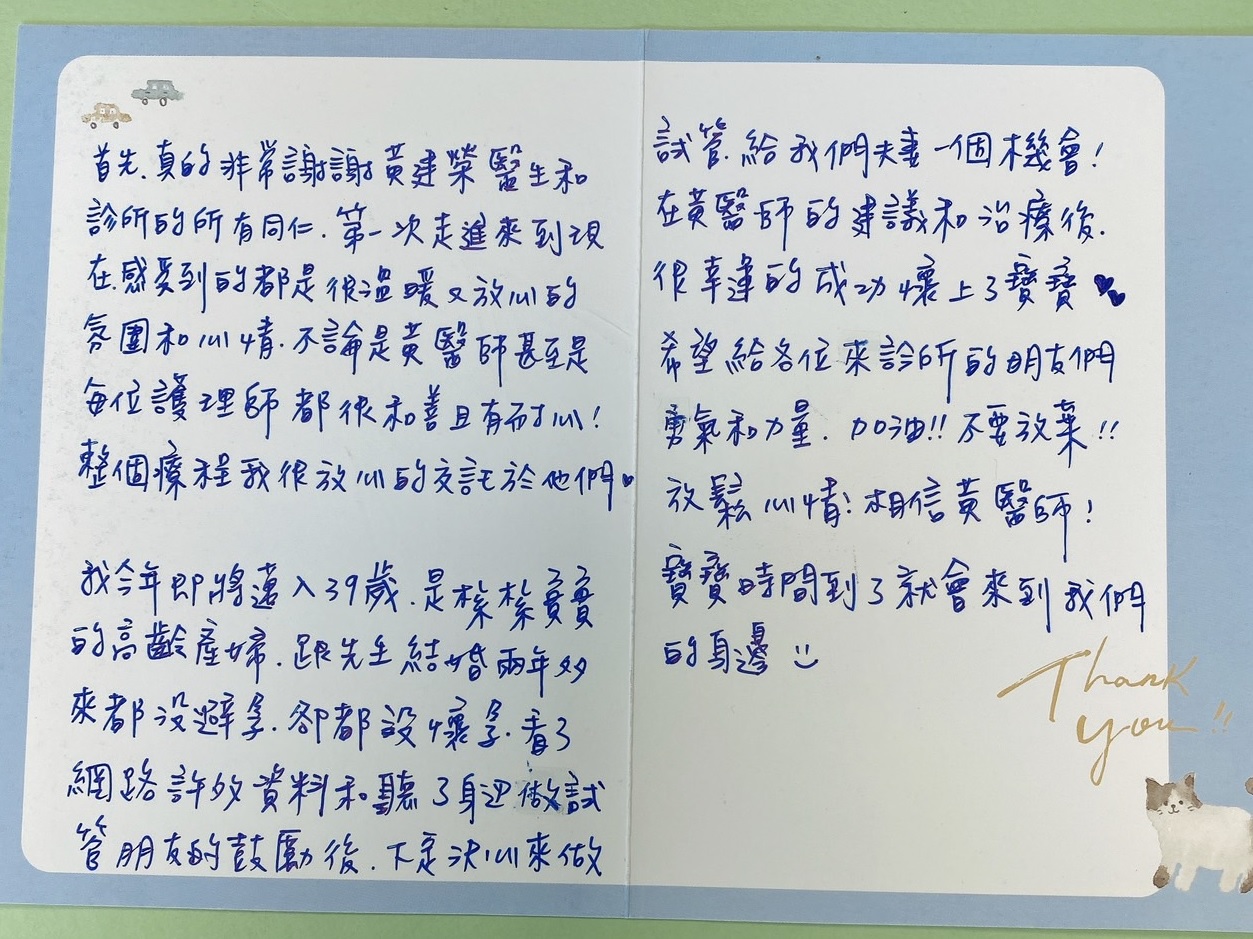 首先.真的非常謝謝黃建榮醫生和
診所的所有同仁.第一次走進來到現
在.感受到的都是很溫暖又放心的
氛圍和心情.不論是黃醫師甚至是
每位護理師都很和善且有耐心!
整個療程我很放心的交託於他們♥
我今年即將邁入39歲.是槳槳實實
的高齡產婦.跟先生結婚兩年多
來都沒避孕.卻都沒懷孕.看了
網路許多資料和聽了身邊做試
管朋友的鼓勵後.下定決心來做
試管.給我們夫妻一個機會!
在黃醫師的建議和治療後.
很幸運的成功懷上了寶寶♥♥
希望給各位來診所的朋友們
勇氣和力量.加油!!不要放棄!!
放鬆心情!相信黃醫師!
寶寶時間到了就會來到我們
的身邊 :)
Thank
you!!